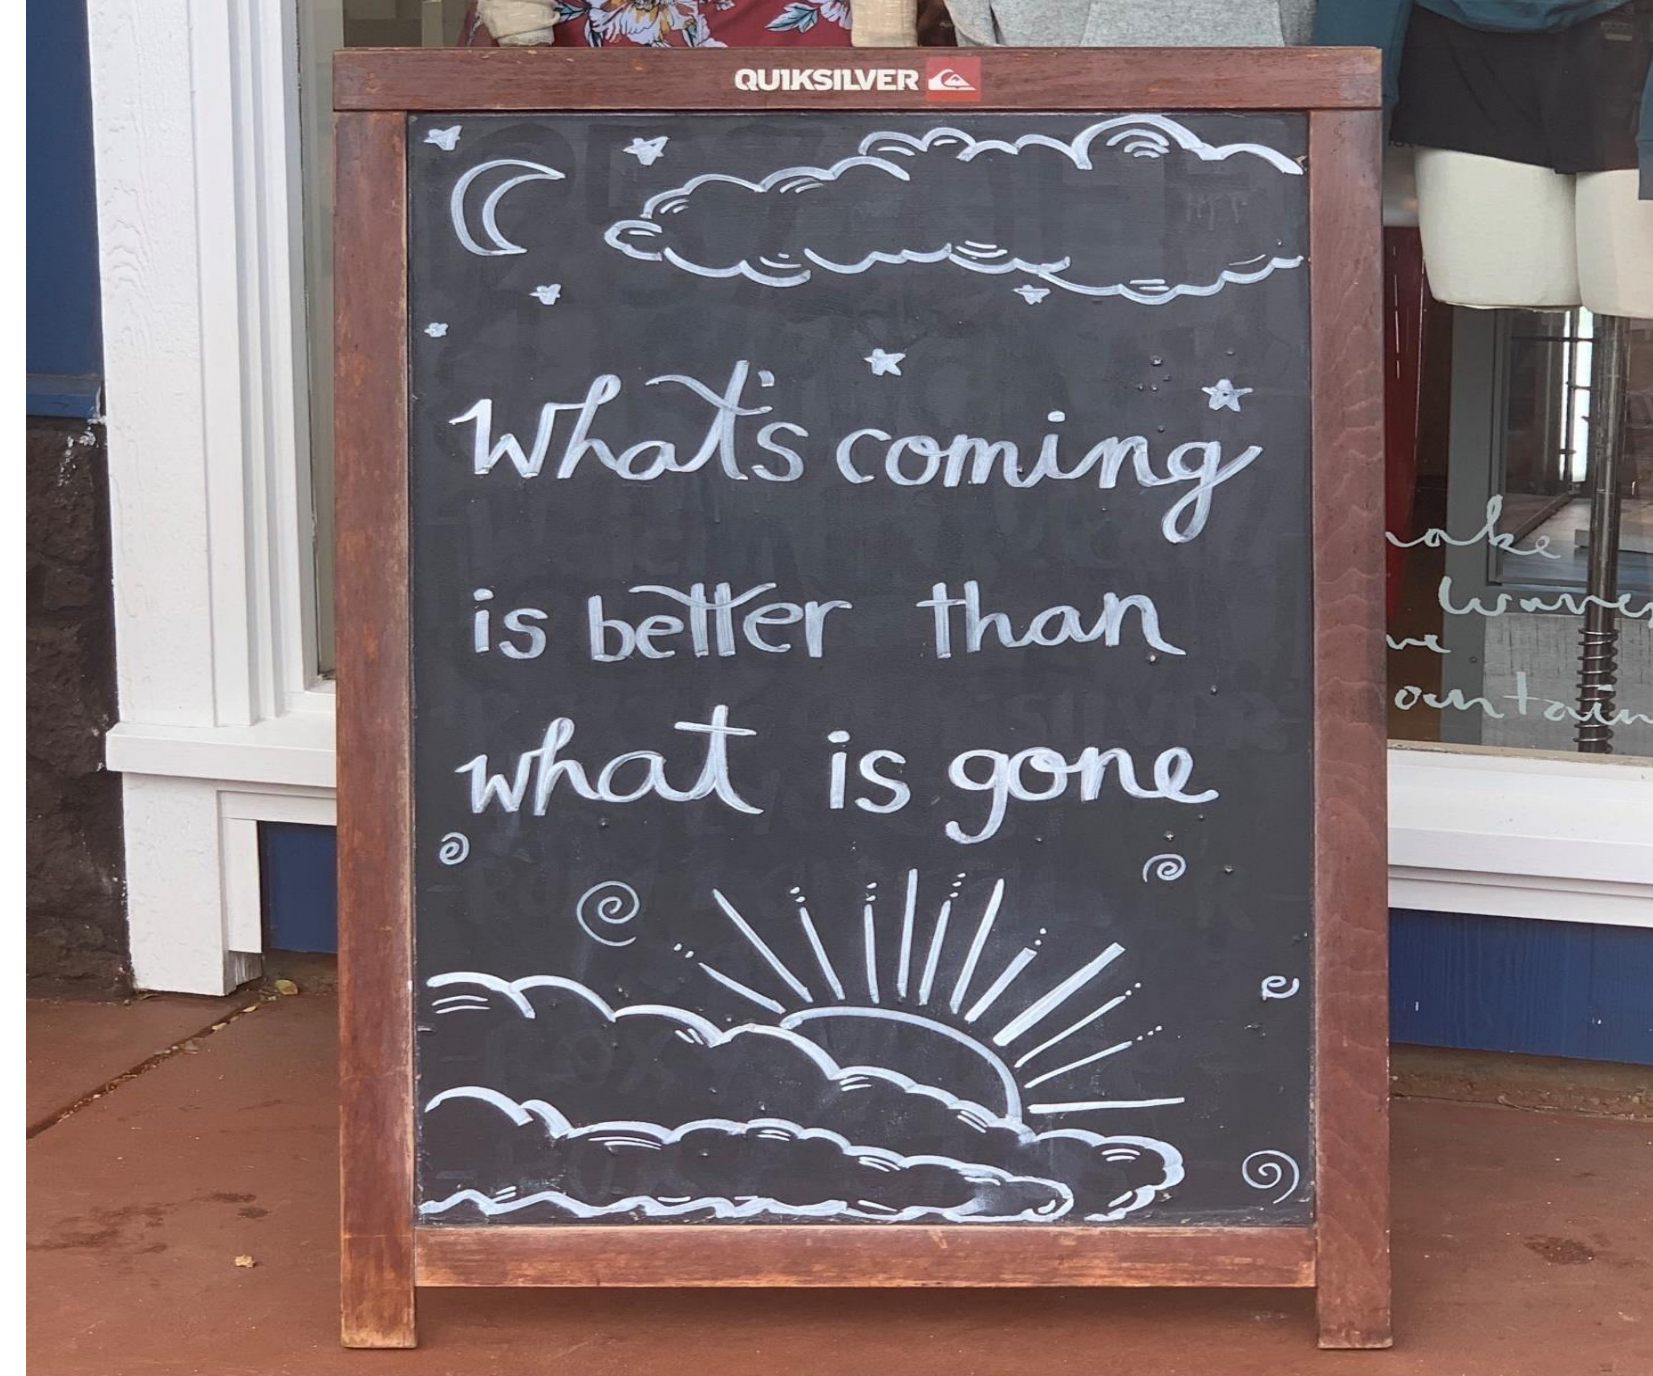 QUIKSILVER
What's coming
is better than
what is gone
waves